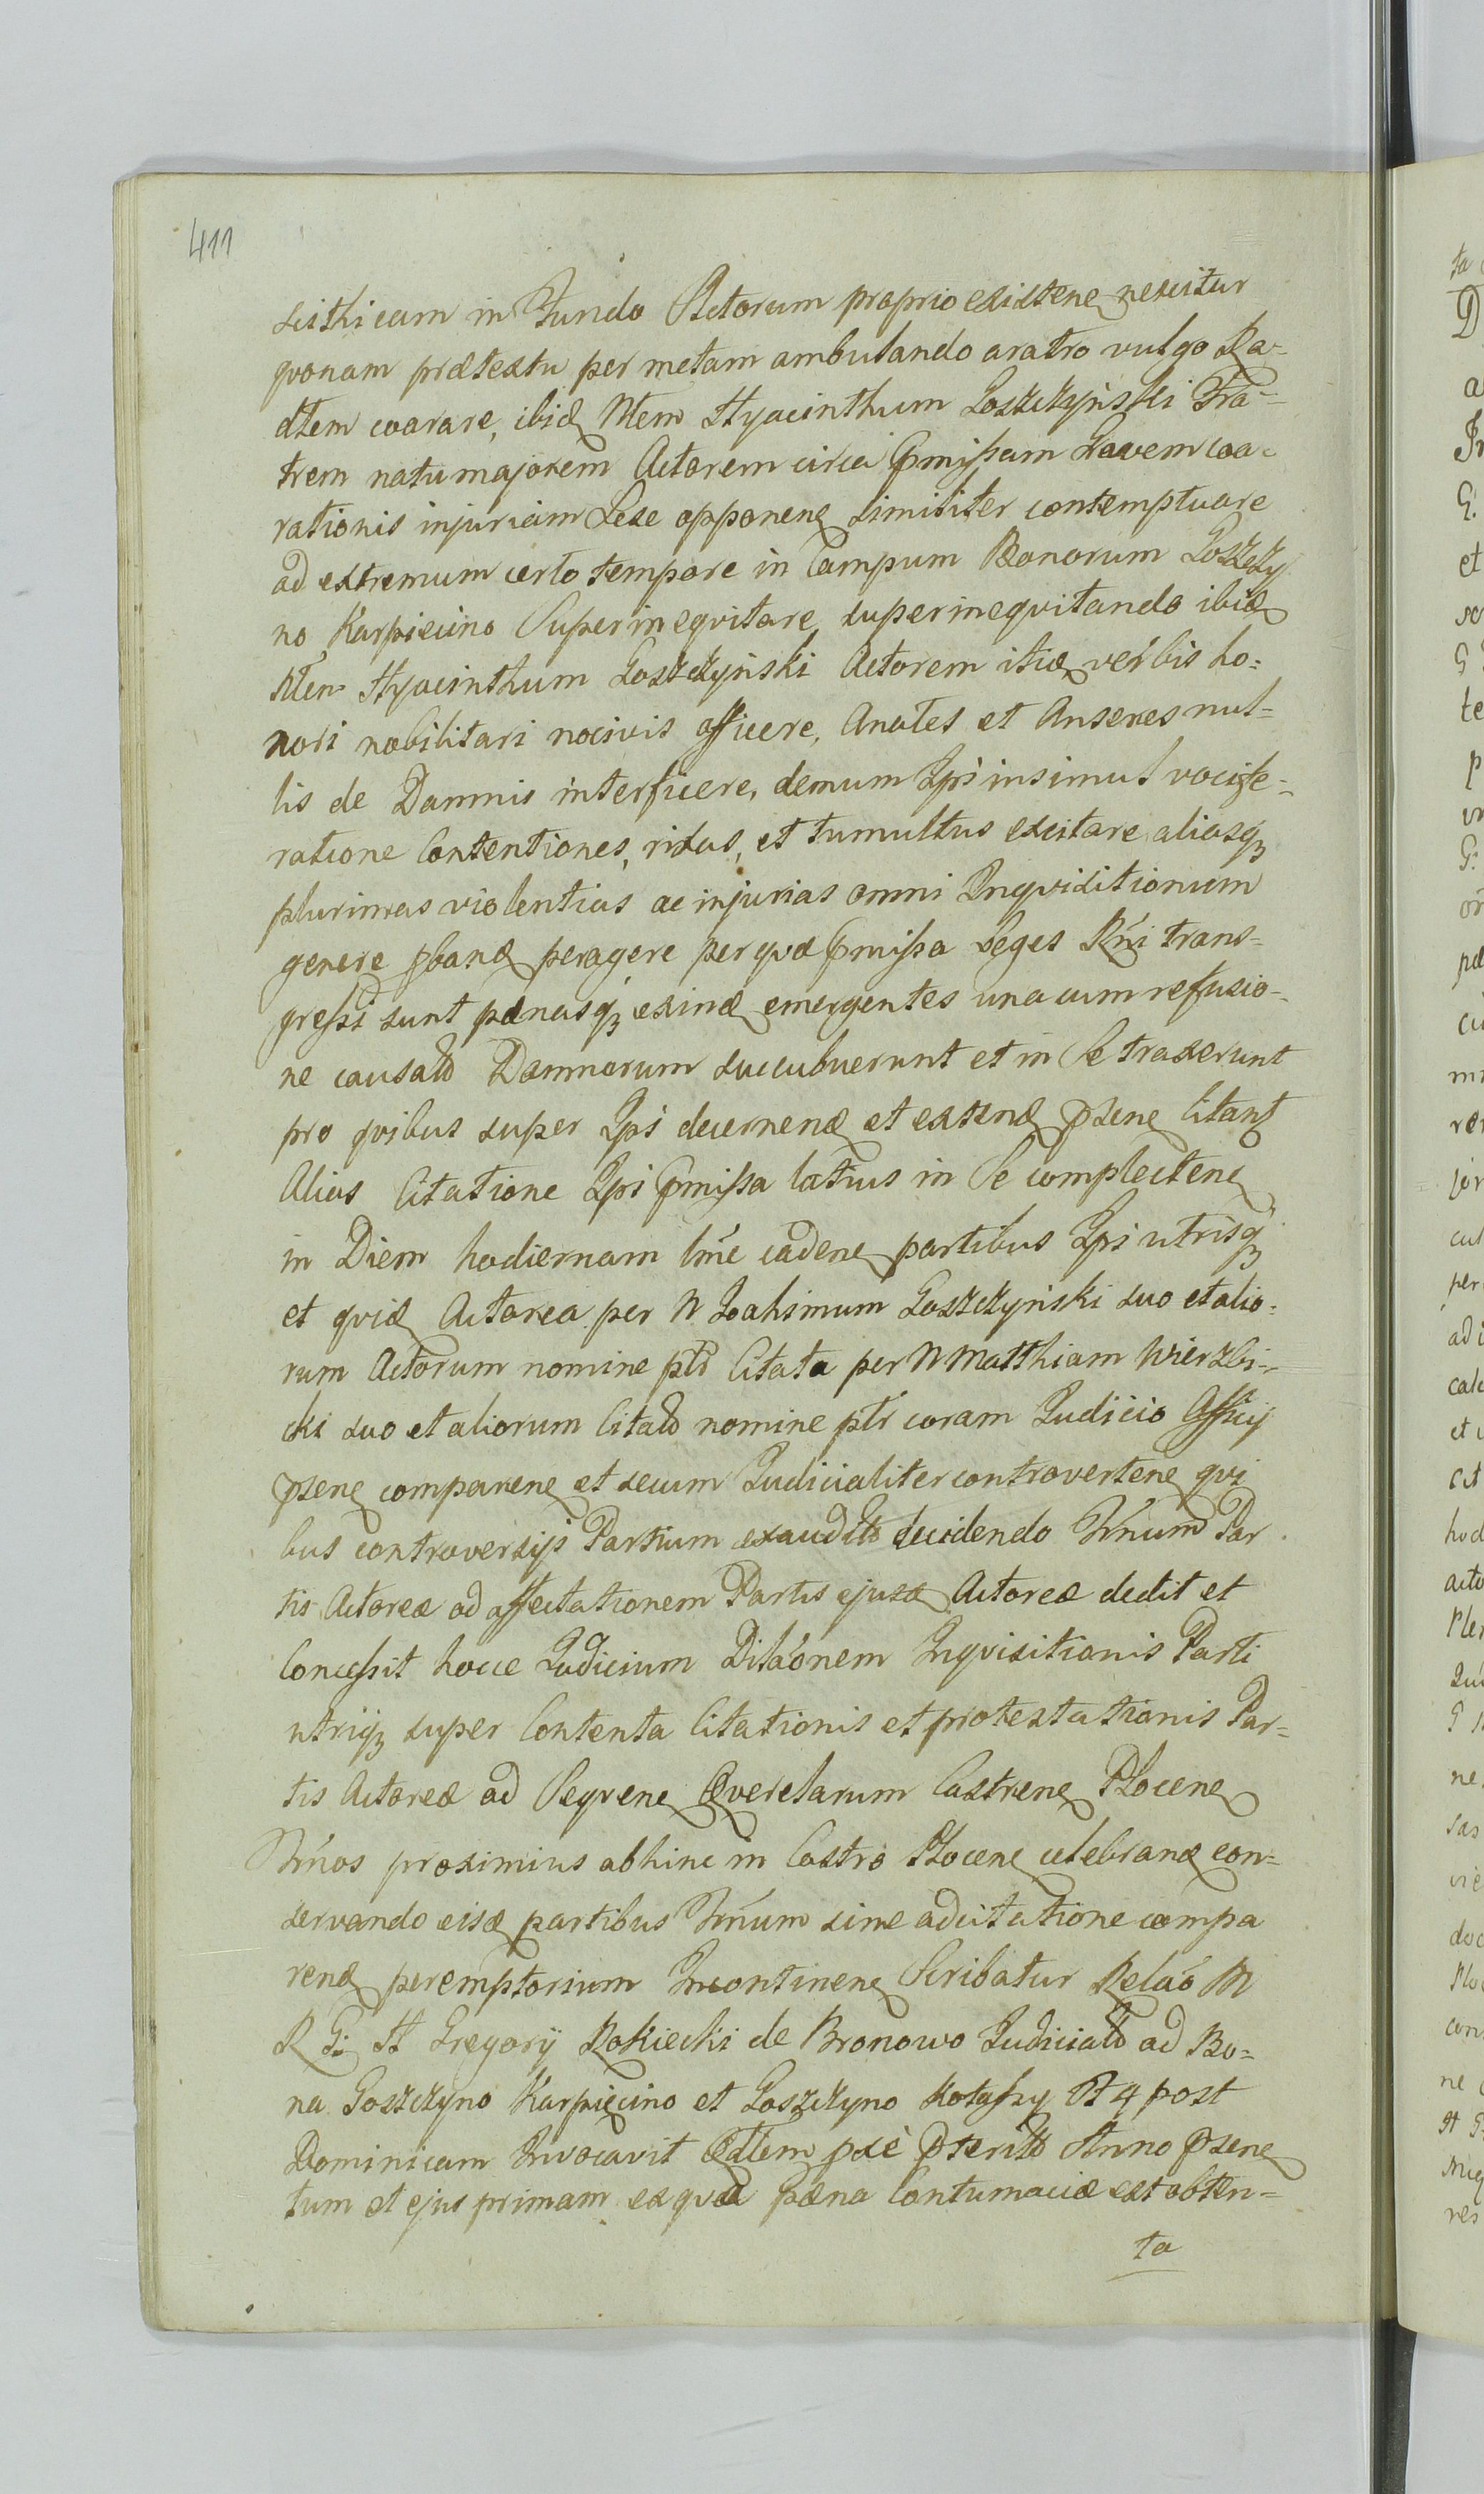 411
sithicam in Fundo Actorum proprio existenꝭ nescitur
qvonam prætextu per metam ambulando aratro vulgo Ra-
dłem coarare, ibidꝭ Mtem Hyacinthum Goszczyński Fra-
trem natu majorem Actorem circa Pmissam Gravem coa-
rationis injuriam Sese opponenꝭ similiter contemptuare
ad extremum certo tempore in Campum Bonorum Goszczy
no Karpięcino Superinequitare, superinequitando ibidꝭ
Mten Hyacinthum Goszczyński Actorem itidꝭ verbis ho-
nori nobilitari nocivis afficere, Anates et Anseres nul-
lis de Damnis interficere, demum Ipsi insimul vocife-
ratione Contentiones, rixas, et tumultus excitare aliasqꝫ
plurimas violentias ac injurias omni Inqvisitionum
genere pbandꝭ peragere per qvæ Pmissa Leges Rni trans-
gressi sunt pænasqꝫ exindꝭ emergentes una cum refusio-
ne causatɔ Damnorum succubuerunt et in Se traxerunt
pro qvibus super Ipsi decernendꝭ et extendꝭ Psenꝭ Citantꝭ
Alias Citatione Ipsi Pmissa latius in Se complectenꝭ
in Diem hodiernam lme cadenꝭ partibus Ipsi utrisqꝫ
et qvidꝭ Actorea per N Joahimum Goszczyński suo et alio-
rum Actorum nomine ptr Citata per N Matthiam Wierzbi-
cki suo et aliorum Citatɔ nomine ptr coram Judicio Officij
Psenꝭ comparenꝭ et secum Judicialiter controvertenꝭ qvi
bus controversijs Partium exauditɔ decidendo Trnum Par
tis Actoreæ ad affectationem Partis ejusdꝭ Actoreæ dedit et
Concessit hocce Judicium Dilaonem Inqvisitionis Parti
utriqꝫ super Contenta Citationis et protestationis Par-
tis Actoreæ ad Seqvenꝭ Qverelarum Castrenꝭ Plocenꝭ
Trnos proximius abhinc in Castro Plocenꝭ celebrandꝭ con-
servando eisdꝭ partibus Trnum sine adcitatione compa
rendꝭ peremptorium Incontinenꝭ Scribatur Relao M
R G: H Gregorij Rokiecki de Bronowo Judicialɔ ad Bo-
na Goszczyno Karpięcino et Goszczyno Kotaszy R 4 post
Dominicam Invocavit Qdlem pxe Pteritɔ Anno Psenꝭ
tum et ejus primam ex qva Pæna Contumaciæ est obten-
ta